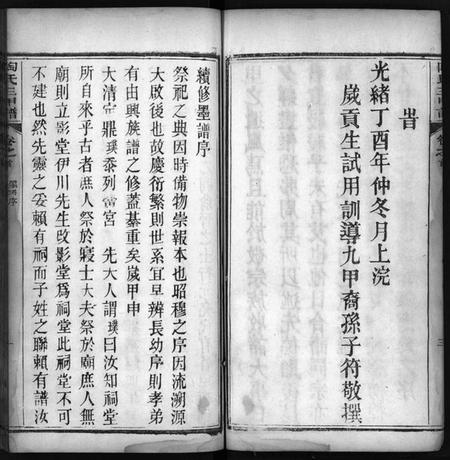 旹
光緒丁酉年仲冬月上浣
歲貢生試用訓導九甲裔孫子符敬撰
三
續修墨譜序
祭祀之典因時備物崇報本也昭穆之序因流溯源
大啟後也故慶衍繁則世系宜早辨長幼序則孝弟
有由興族譜之修蓋綦重矣歲甲申
大清定鼎璞忝列黌宮 先大人謂璞曰汝知祠堂
所自來乎古者庶人祭於寢士大夫祭於廟庶人無
廟則立影堂伊川先生改影堂爲祠堂此祠堂不可
不建也然先靈之妥賴有祠而子姓之聯賴有譜汝
陶氏三甲譜
卷之首